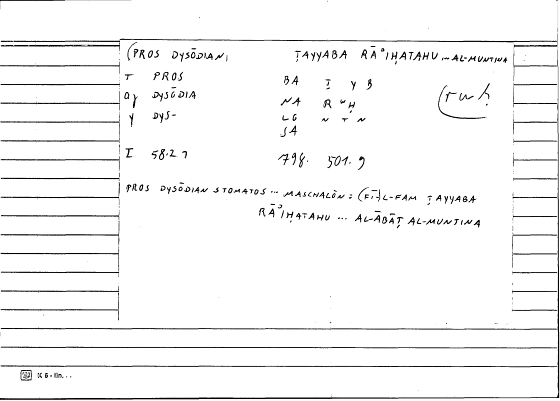 (PROS DYSŌDIAN; ṬAYYABA RĀʾIḤATAHU ... AL-MUNTINA
T PROS BA Ṭ Y B
DYSŌDIA NA R W Ḥ (rwḥ
Y DYS- LG N T N
SA
I 58.21 798. 501.9
PROS DYSŌDIAN STOMATOS ... MASCHALŌN : (FĪ-)L-FAM ṬAYYABA
RĀʾIḤATAHU ... AL-ĀBĀṬ AL-MUNTINA